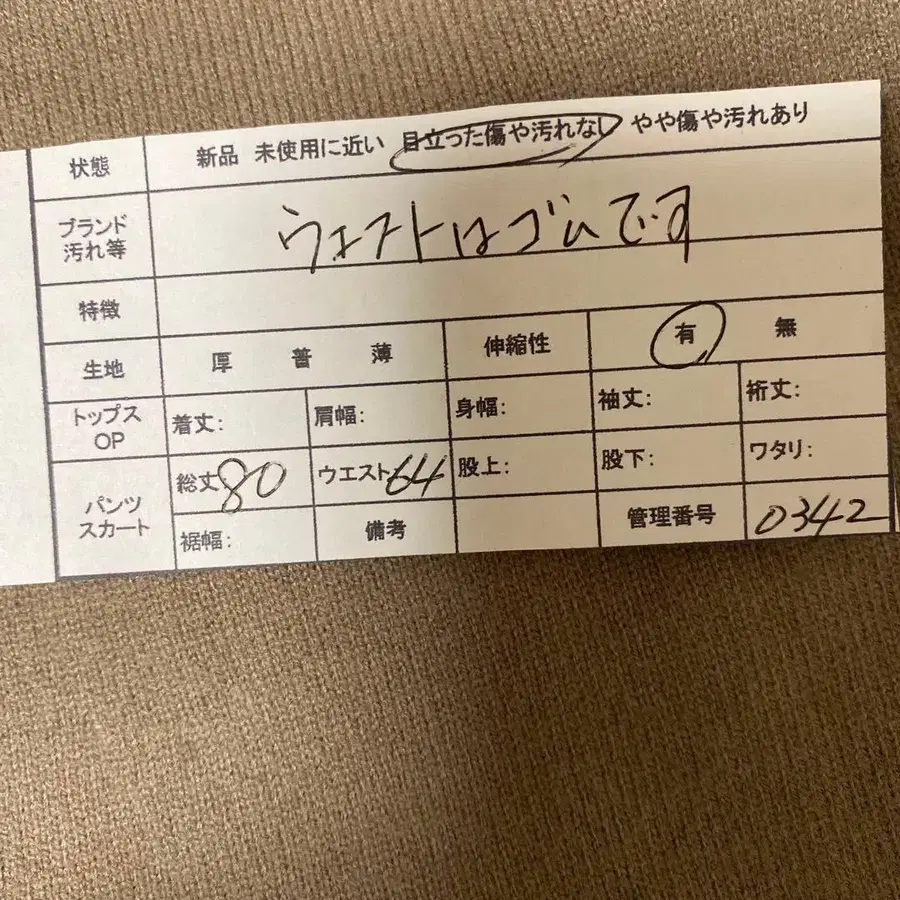 状態 新品 未使用に近い 目立った傷や汚れなし やや傷や汚れあり
ブランド
汚れ等 ウエストはゴムです
特徴
生地 厚 普 薄 伸縮性 有 無
トップス
OP 着丈: 肩幅: 身幅: 袖丈: 裄丈:
パンツ
スカート 総丈80 ウエスト64 股上: 股下: ワタリ:
裾幅: 備考 管理番号 0342